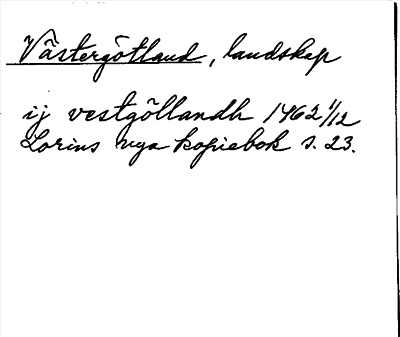 Västergötland, landskap
ij vestgötlandh 1462 1/12
Lorins nya kopiebok s. 23.